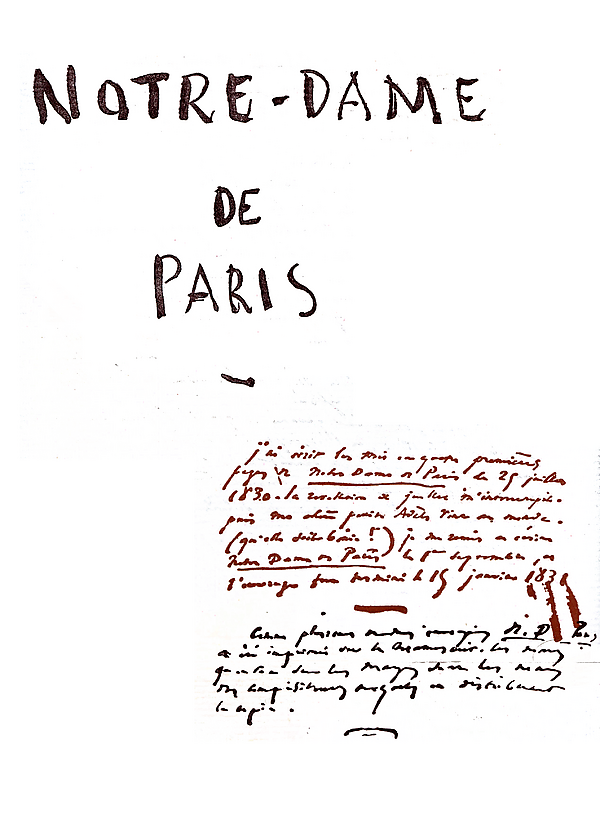 NOTRE-DAME
DE
PARIS
j'ai écrit les trois ou quatre premières
pages de Notre-Dame de Paris le 25 juillet
1830. la révolution de juillet m'interrompit.
puis ma chère petite Adèle vint au monde.
(qu'elle soit bénie!) je me remis à écrire
Notre-Dame de Paris le 1er septembre, et
l'ouvrage fut terminé le 15 janvier 1831
Comme plusieurs N. D. Paris,
a été imprimé sur le manuscrit. les noms
qu'on lit dans les marges sont les noms
des compositeurs la
la copie.